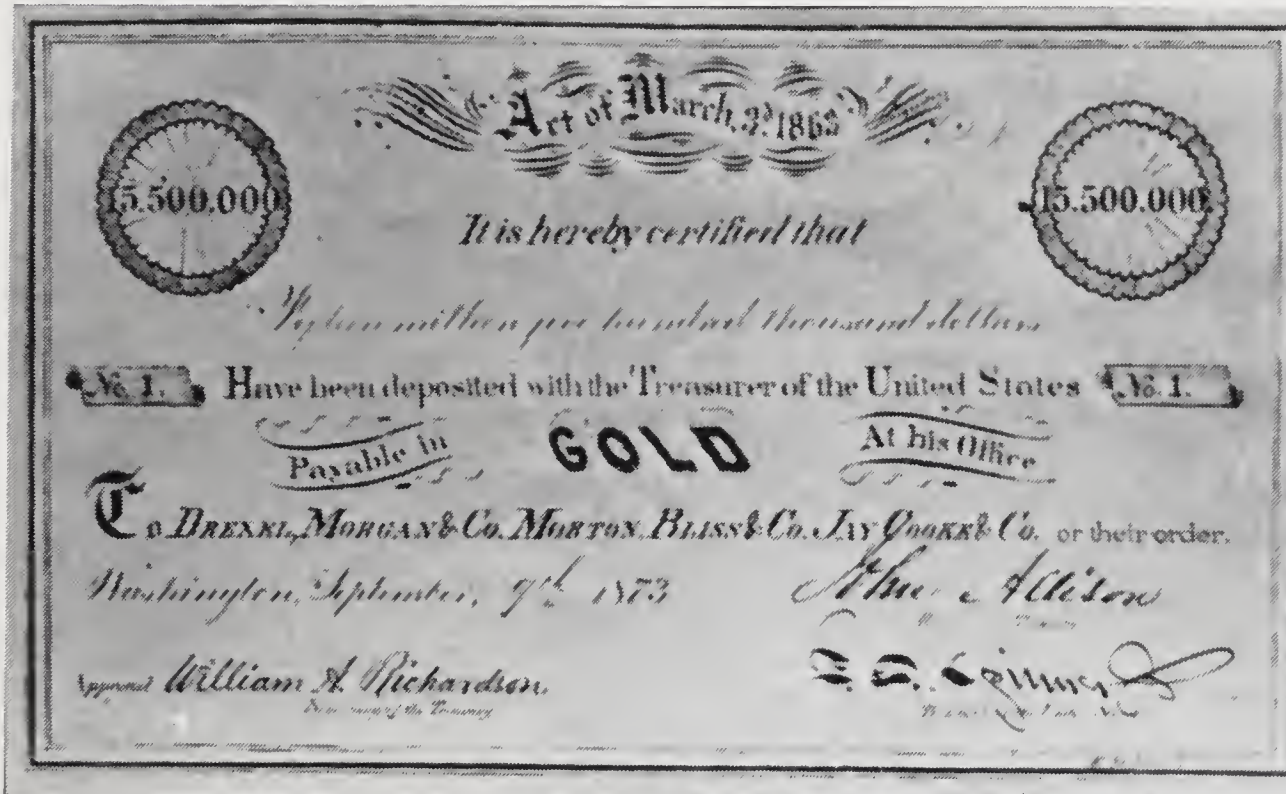 Act of March, 3d. 1863
15.500.000 15.500.000.
It is hereby certified that
Fifteen million five hundred thousand dollars
No. 1. Have been deposited with the Treasurer of the United States No. 1.
Payable in GOLD At his Office
To DREXEL, MORGAN & CO. MORTON, BLISS & CO. JAY COOKE & CO. or their order.
Washington, September, 9th 1873 John Allison
Approved William A. Richardson.
Secretary of the Treasury